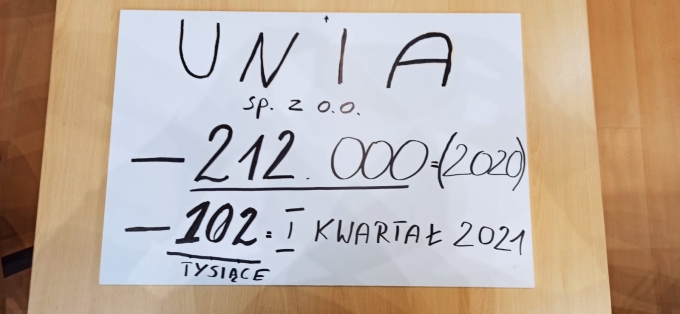 UNIA
sp. z o.o.
— 212.000=(2020)
— 102 = I KWARTAŁ 2021
TYSIĄCE